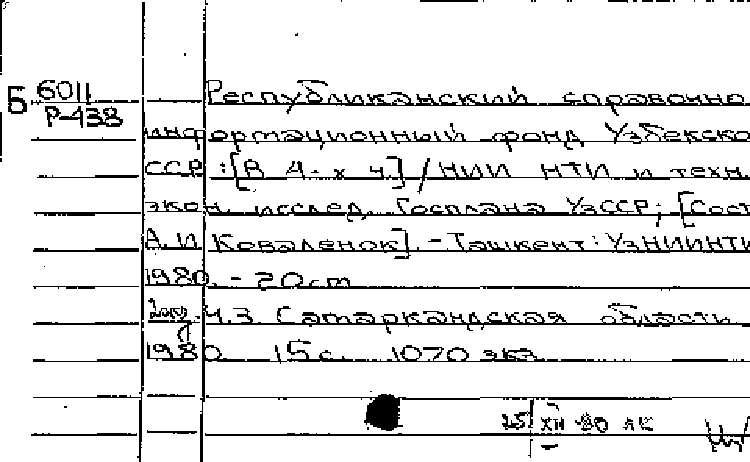 Б 6011
Р-438
Республиканский справочно
информационный фонд Узбекско
ССР :[В 4-х ч.] / НИИ НТИ и техн.
экон. исслед. Госплана УзССР; [Сост
А.И Коваленок]. - Ташкент: УзНИИНТИ
1980. - 20 cm
Ч.3. Самаркандская области
1980 15 с. 1070 экз
25 XII 80 ЛК